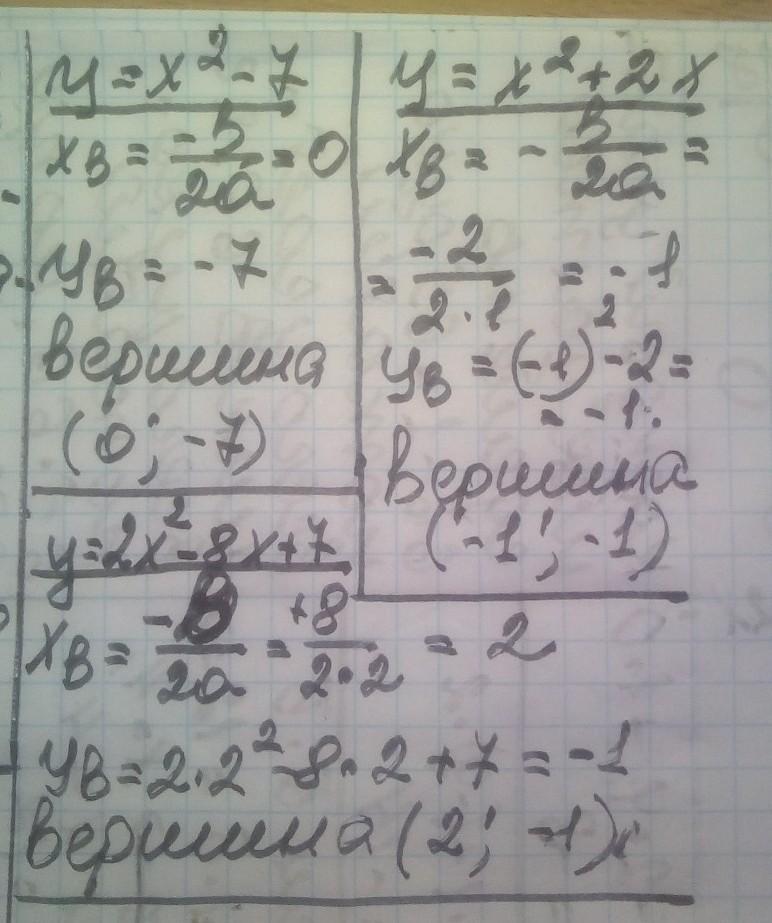 y = x² - 7
xв = -в/2a = 0
yв = -7
вершина
(0; -7)
y = x² + 2x
xв = - в/2a =
= -2/2·1 = -1
yв = (-1)² - 2 =
= -1.
вершина
(-1; -1)
y = 2x² - 8x + 7
xв = -в/2a = +8/2·2 = 2
yв = 2·2² - 8·2 + 7 = -1
вершина (2; -1)